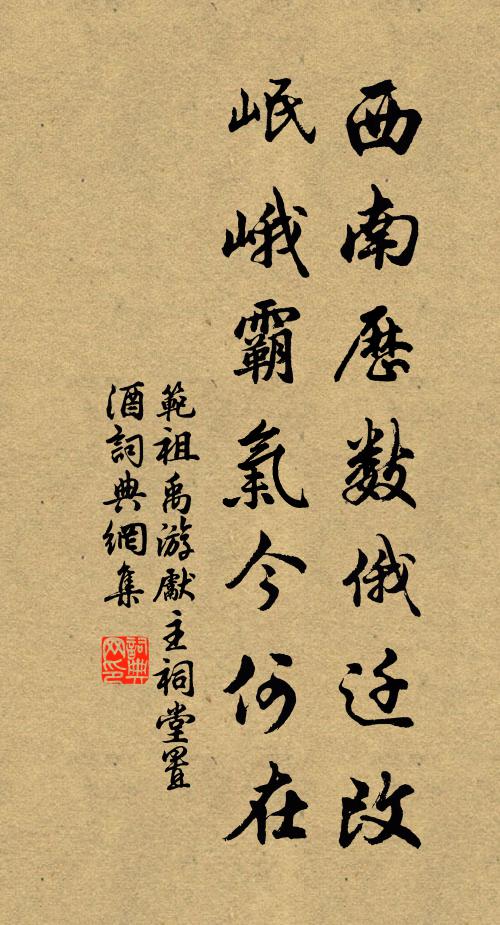 西南歷數俄迁改
岷峨霸氣今何在
範祖禹游獻主祠堂置
酒詞典網集
詞典网印